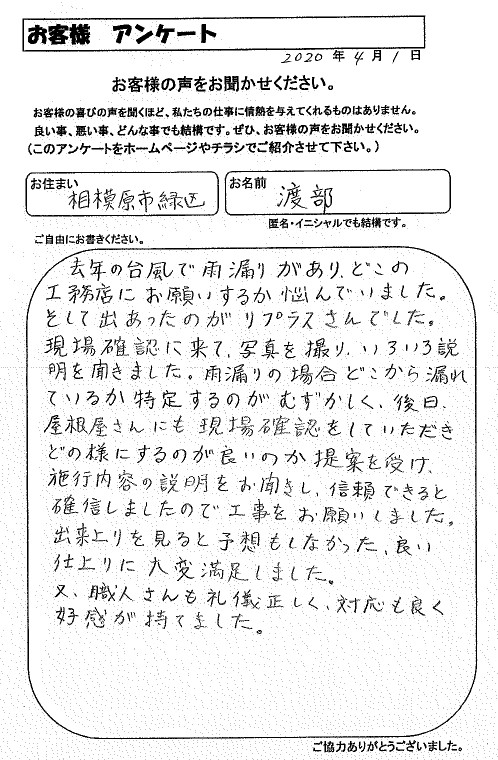 お客様 アンケート
2020 年 4 月 1 日
お客様の声をお聞かせください。
お客様の喜びの声を聞くほど、私たちの仕事に情熱を与えてくれるものはありません。
良い事、悪い事、どんな事でも結構です。ぜひ、お客様の声をお聞かせください。
(このアンケートをホームページやチラシでご紹介させて下さい。)
お住まい 相模原市緑区
お名前 渡部
匿名・イニシャルでも結構です。
ご自由にお書きください。
去年の台風で雨漏りがあり、どこの
工務店にお願いするか悩んでいました。
そして出あったのがリプラスさんでした。
現場確認に来て、写真を撮り、いろいろ説
明を聞きました。雨漏りの場合どこから漏れ
ているか特定するのがむずかしく、後日、
屋根屋さんにも現場確認をしていただき
どの様にするのが良いのか提案を受け、
施行内容の説明をお聞きし、信頼できると
確信しましたので工事をお願いしました。
出来上りを見ると予想もしなかった、良い
仕上りに大変満足しました。
又、職人さんも礼儀正しく、対応も良く
好感が持てました。
ご協力ありがとうございました。